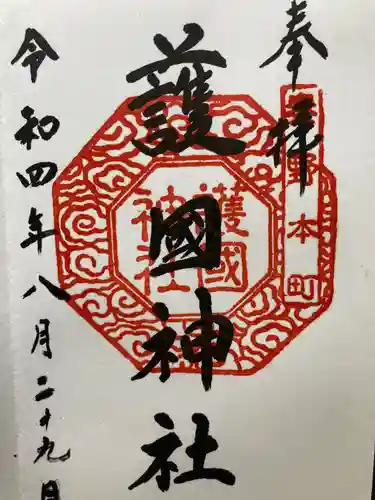 奉拝
護國神社
令和四年八月二十九日
護國
神社
野本町